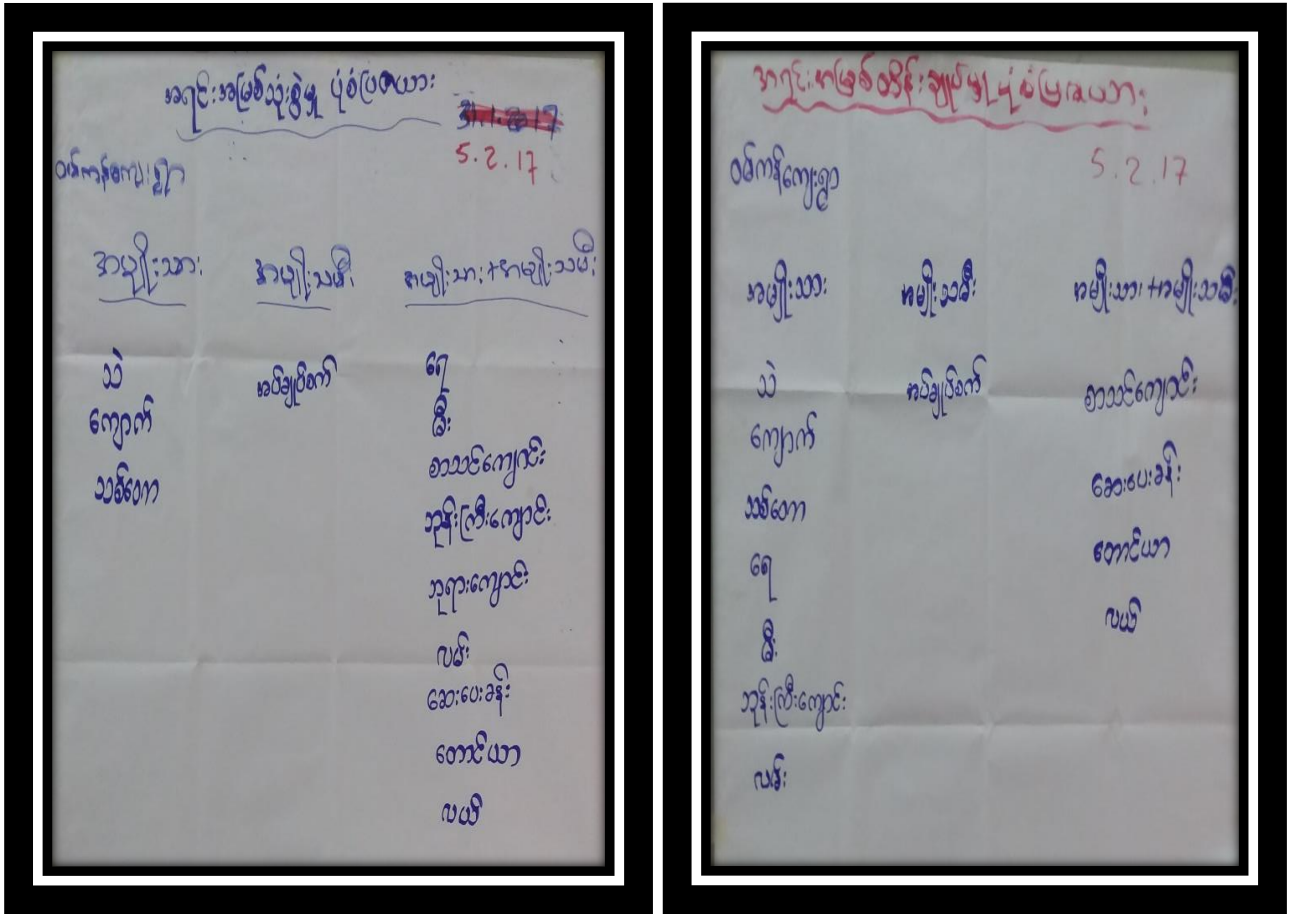 အရင်းအမြစ်သုံးစွဲမှု ပုံစံပြဇယား
5.2.17
ဝမ်ကန်ကျေးရွာ
အမျိုးသား အမျိုးသမီး အမျိုးသား+အမျိုးသမီး
သဲ အပ်ချုပ်စက် ရေ
ကျောက် မီး
သစ်တော စာသင်ကျောင်း
ဘုန်းကြီးကျောင်း
ဘုရားကျောင်း
လမ်း
ဆေးပေးခန်း
တောင်ယာ
လယ်
အရင်းအမြစ်ထိန်းချုပ်မှု ပုံစံပြဇယား
5.2.17
ဝမ်ကန်ကျေးရွာ
အမျိုးသား အမျိုးသမီး အမျိုးသား+အမျိုးသမီး
သဲ အပ်ချုပ်စက် စာသင်ကျောင်း
ကျောက် ဆေးပေးခန်း
သစ်တော တောင်ယာ
ရေ လယ်
မီး
ဘုန်းကြီးကျောင်း
လမ်း